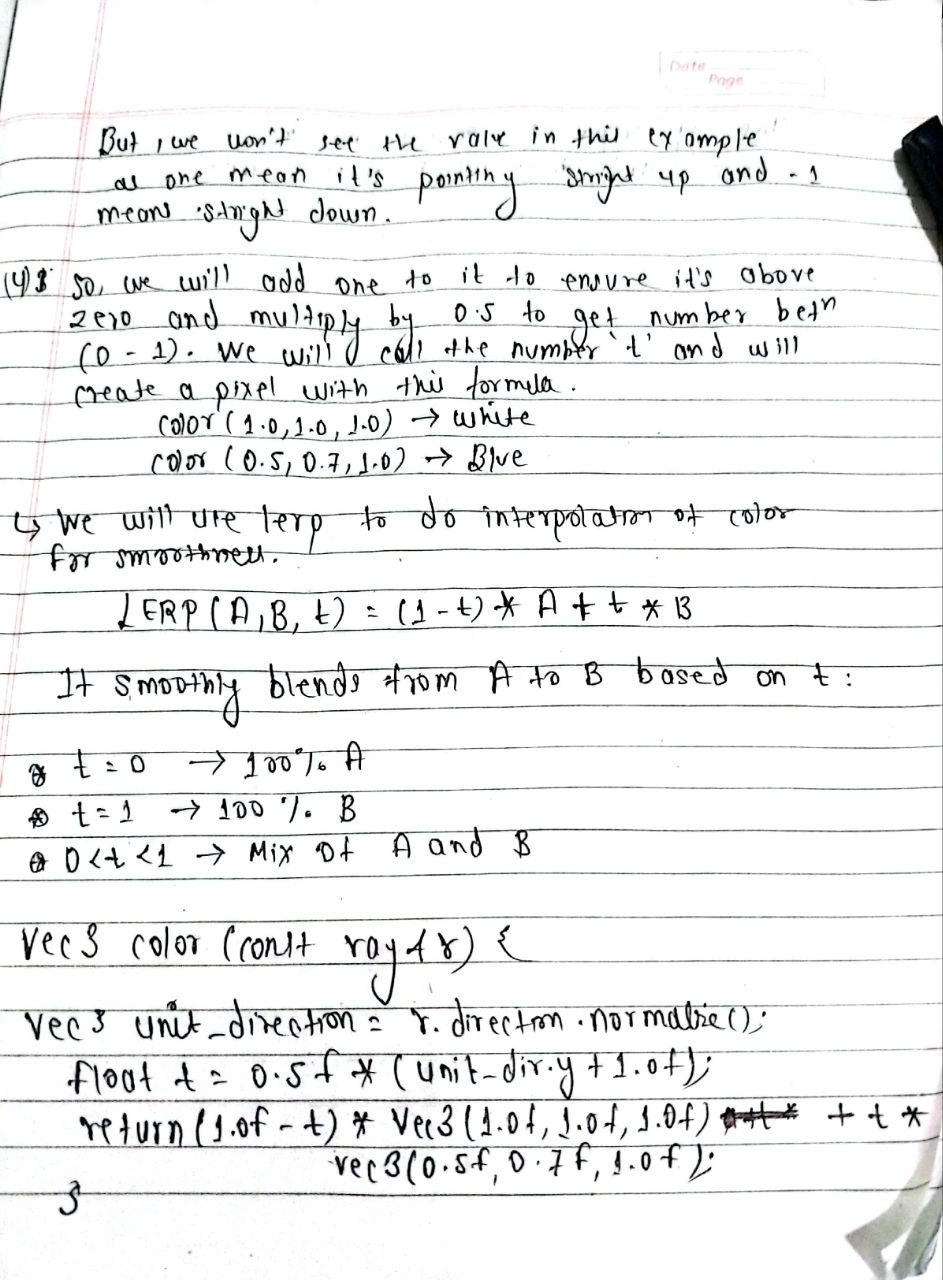 Date
Page
But, we won't see the value in this example
as one mean it's pointing straight up and -1
means straight down.
(4) So, we will add one to it to ensure it's above
zero and multiply by 0.5 to get number betn
(0 - 1). We will call the number 't' and will
create a pixel with this formula.
color (1.0, 1.0, 1.0) → White
color (0.5, 0.7, 1.0) → Blue
↳ We will use lerp to do interpolation of color
for smoothness.
LERP (A, B, t) = (1 - t) * A + t * B
It smoothly blends from A to B based on t :
t = 0 → 100% A
t = 1 → 100 % B
0 < t < 1 → Mix of A and B
Vec3 color (const ray & r) {
Vec3 unit_direction = r. direction . normalize ();
float t = 0.5 f * (unit_dir.y + 1.0f);
return (1.0f - t) * Vec3 (1.0f, 1.0f, 1.0f) + t *
vec3 (0.5f, 0.7f, 1.0f);
}